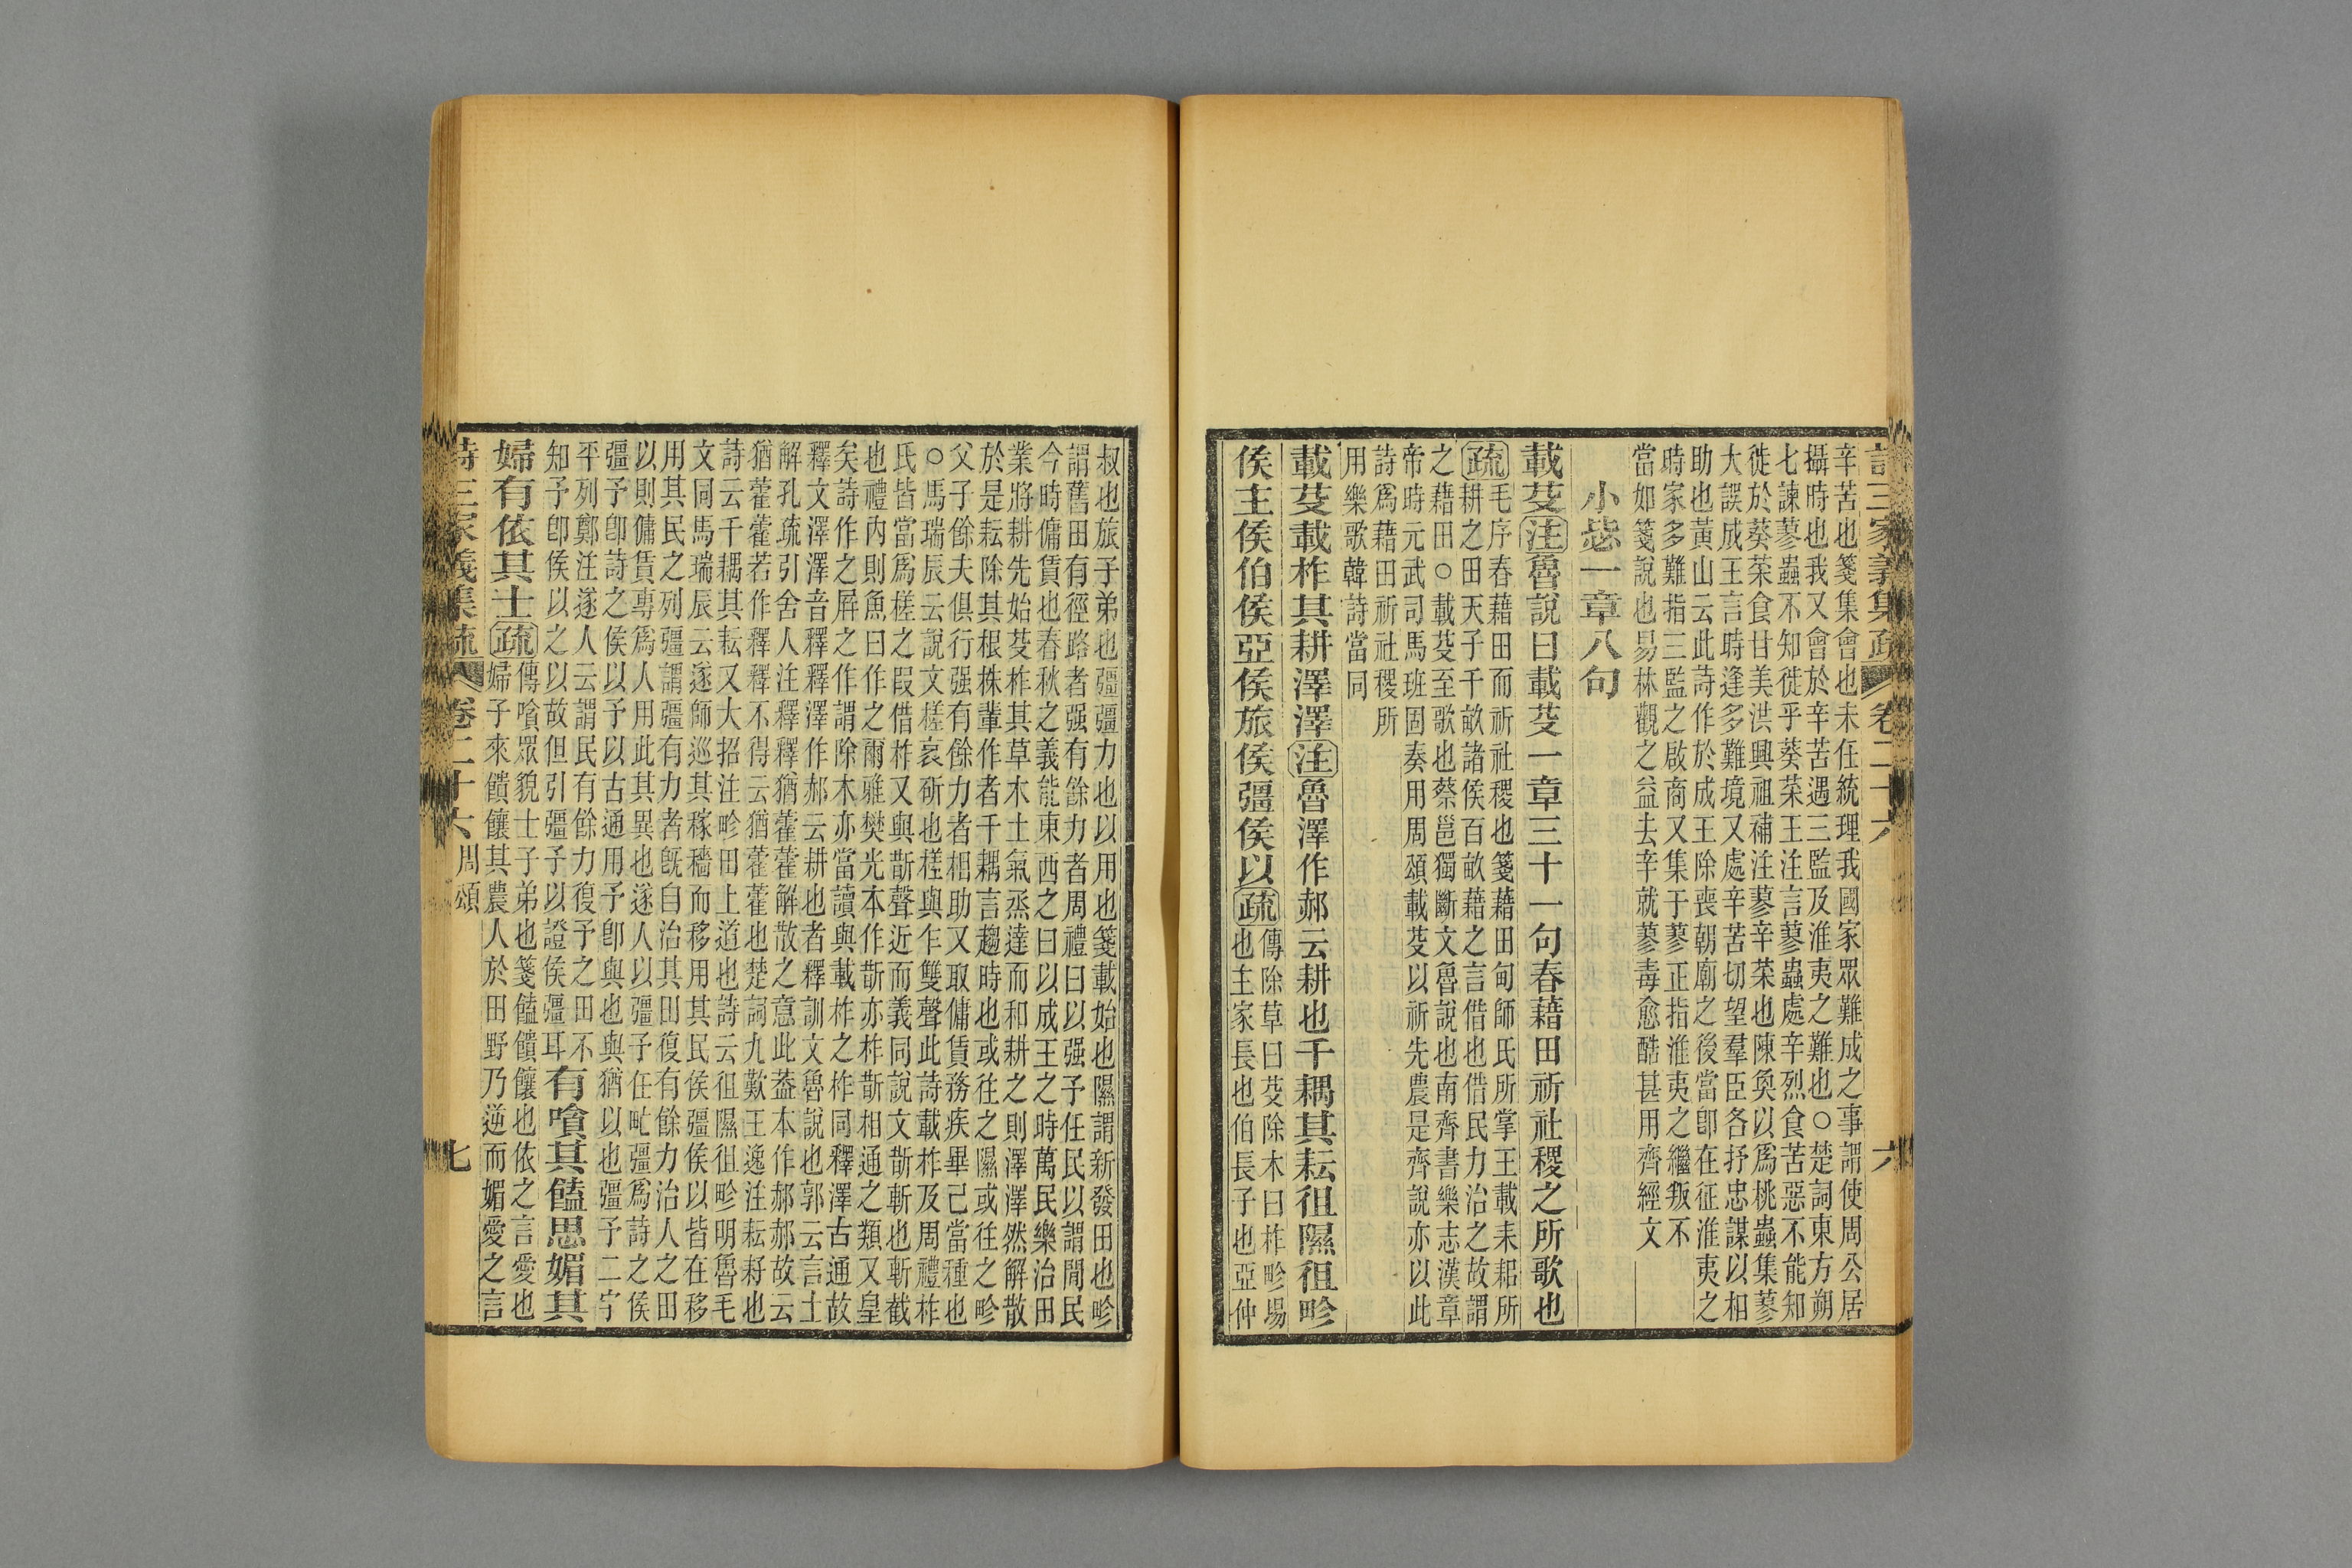 詩三家義集疏 卷二十六 六
辛苦也箋集會也未任統理我國家眾難成之事謂使周公居
攝時也我又會於辛苦遇三監及淮夷之難也○楚詞東方朔
七諫蓼蟲不知徙乎葵菜王注言蓼蟲處辛烈食苦惡不能知
徙於葵菜食甘美洪興祖補注蓼辛菜也陳奐以爲桃蟲集蓼
大誤成王言時逢多難境又處辛苦切望羣臣各抒忠謀以相
助也黃山云此詩作於成王除喪朝廟之後當卽在征淮夷之
時家多難指三監之啟商又集于蓼正指淮夷之繼叛不
當如箋說也易林觀之益去辛就蓼毒愈酷甚用齊經文
小毖一章八句
載芟注魯說曰載芟一章三十一句春藉田祈社稷之所歌也
疏毛序春藉田而祈社稷也箋藉田甸師氏所掌王載耒耜所
耕之田天子千畝諸侯百畝藉之言借也借民力治之故謂
之藉田○載芟至歌也蔡邕獨斷文魯說也南齊書樂志漢章
帝時元武司馬班固奏用周頌載芟以祈先農是齊說亦以此
詩爲藉田祈社稷所
用樂歌韓詩當同
載芟載柞其耕澤澤注魯澤作郝云耕也千耦其耘徂隰徂畛
侯主侯伯侯亞侯旅侯彊侯以疏傳除草曰芟除木曰柞畛場
也主家長也伯長子也亞仲
叔也旅子弟也彊彊力也以用也箋載始也隰謂新發田也畛
謂舊田有徑路者强有餘力者周禮曰以强予任民以謂閒民
今時傭賃也春秋之義能東西之曰以成王之時萬民樂治田
業將耕先始芟柞其草木土氣烝達而和耕之則澤澤然解散
於是耘除其根株輩作者千耦言趨時也或往之隰或往之畛
父子餘夫俱行强有餘力者相助又取傭賃務疾畢己當種也
○馬瑞辰云說文槎衺斫也槎與乍雙聲此詩載柞及周禮柞
氏皆當爲槎之叚借柞又與斮聲近而義同說文斮斬也斬截
也禮內則魚曰作之爾雅樊光本作斮亦柞斮相通之類又皇
矣詩作之屏之作謂除木亦當讀與載柞之柞同釋澤古通故
釋文澤澤音釋釋澤作郝云耕也者釋訓文魯說也郭云言土
解孔疏引舍人注釋釋猶藿藿解散之意此蓋本作郝郝故云
猶藿藿若作釋釋不得云猶藿藿也楚詞九歎王逸注耘耔也
詩云千耦其耘又大招注畛田上道也詩云徂隰徂畛明魯毛
文同馬瑞辰云遂師巡其稼穡而移用其民侯彊侯以皆在移
用其民之列彊謂彊有力者旣自治其田復有餘力治人之田
以則傭賃專爲人用此其異也遂人以彊予任甿彊爲詩之侯
彊予卽詩之侯以予以古通用予卽與也與猶以也彊予二字
平列鄭注遂人云謂民有餘力復予之田不
知予卽侯以之以故但引彊予以證侯彊耳有嗿其饁思媚其
婦有依其士疏傳嗿眾貌士子弟也箋饁饋饟也依之言愛也
婦子來饋饟其農人於田野乃逆而媚愛之言
詩三家義集疏 卷二十六 周頌 七